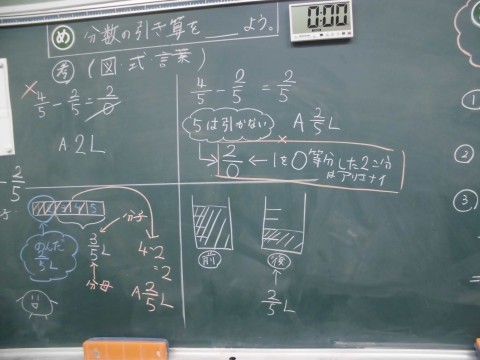 め 分数の引き算を＿＿よう。
0:00
考 (図・式・言葉)
× 4/5 - 2/5 = 2/0
A 2L
4/5 - 2/5 = 2/5
5は引かない
A 2/5 L
2/0 ← 1を0等分した2こ分
はアリエナイ
- 2/5
5
のんだ
2/5 L
3/5 L
分子
分母
4-2
=2
A 2/5 L
前
後
2/5 L
①
②
③